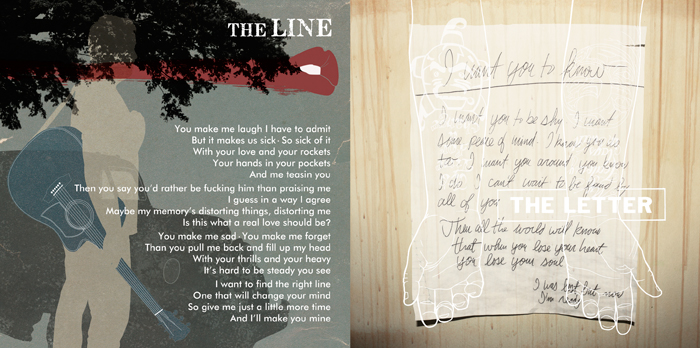 THE LINE
You make me laugh I have to admit
But it makes us sick · So sick of it
With your love and your rockets
Your hands in your pockets
And me teasin you
Then you say you'd rather be fucking him than praising me
I guess in a way I agree
Maybe my memory's distorting things, distorting me
Is this what a real love should be?
You make me sad · You make me forget
Than you pull me back and fill up my head
With your thrills and your heavy
It's hard to be steady you see
I want to find the right line
One that will change your mind
So give me just a little more time
And I'll make you mine
I want you to know
I want you to be shy I want
some peace of mind I know you is
to I want you around you know
I do I cant wait to be found by
all of you
THE LETTER
Then all the world will know
that when you lose your heart
you lose your soul
I was lost but now
I'm